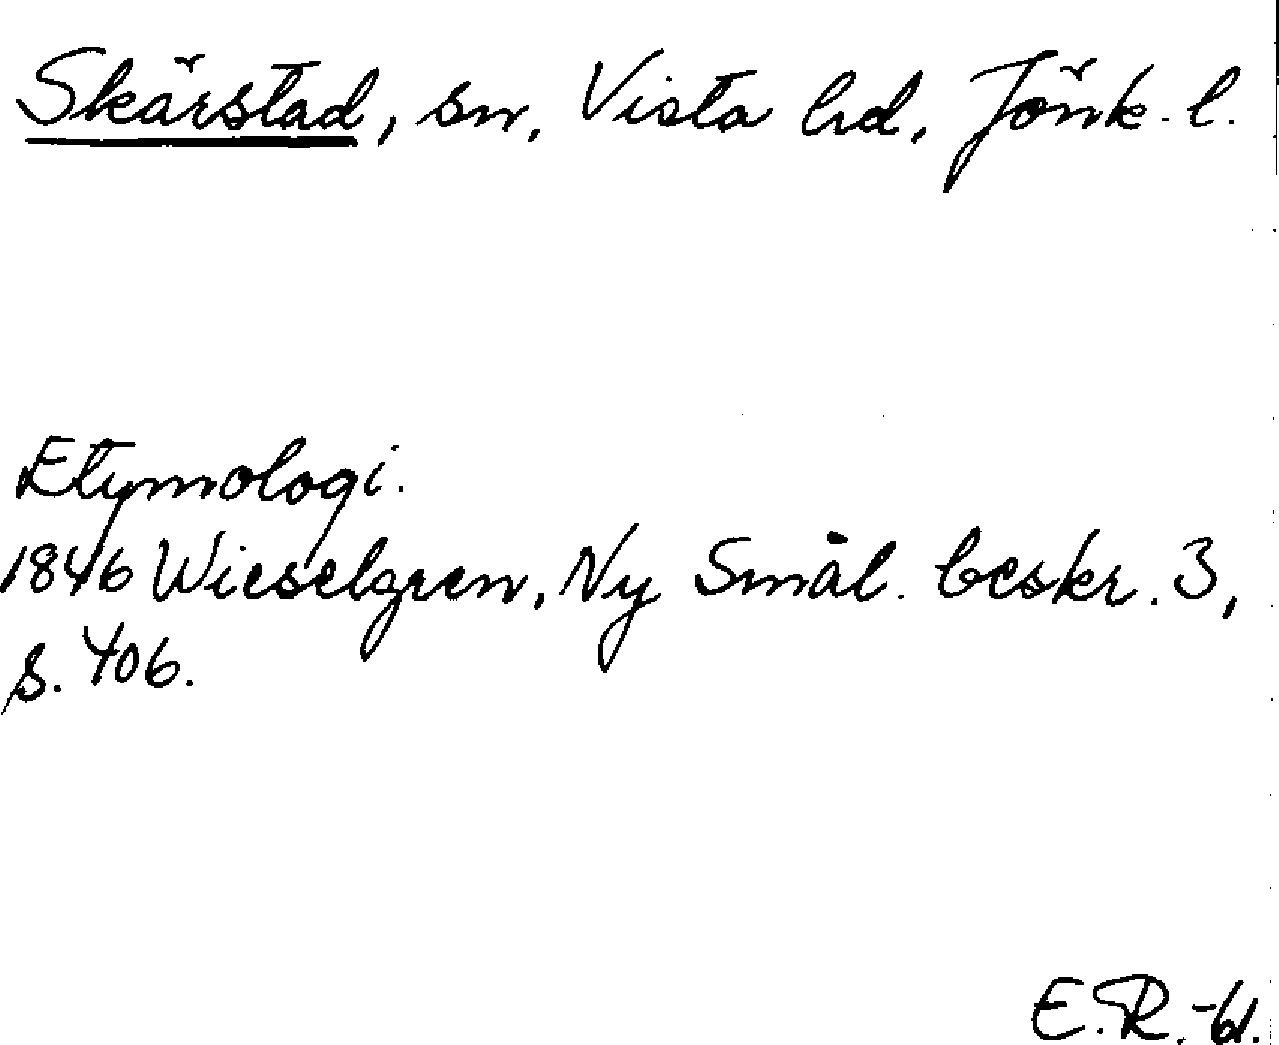 Skärstad, sn, Vista hd, Jönk. l.
Etymologi.
1846 Wieselgren, Ny Smål. beskr. 3,
s. 406.
E.R.-61.